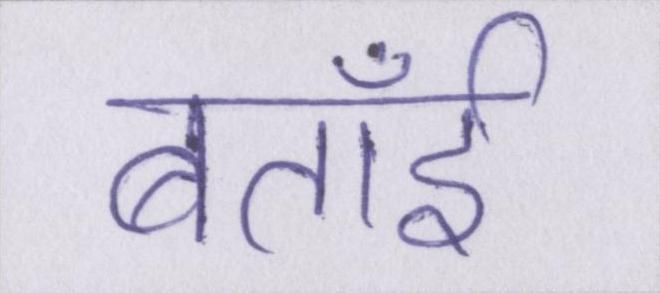 बताँई